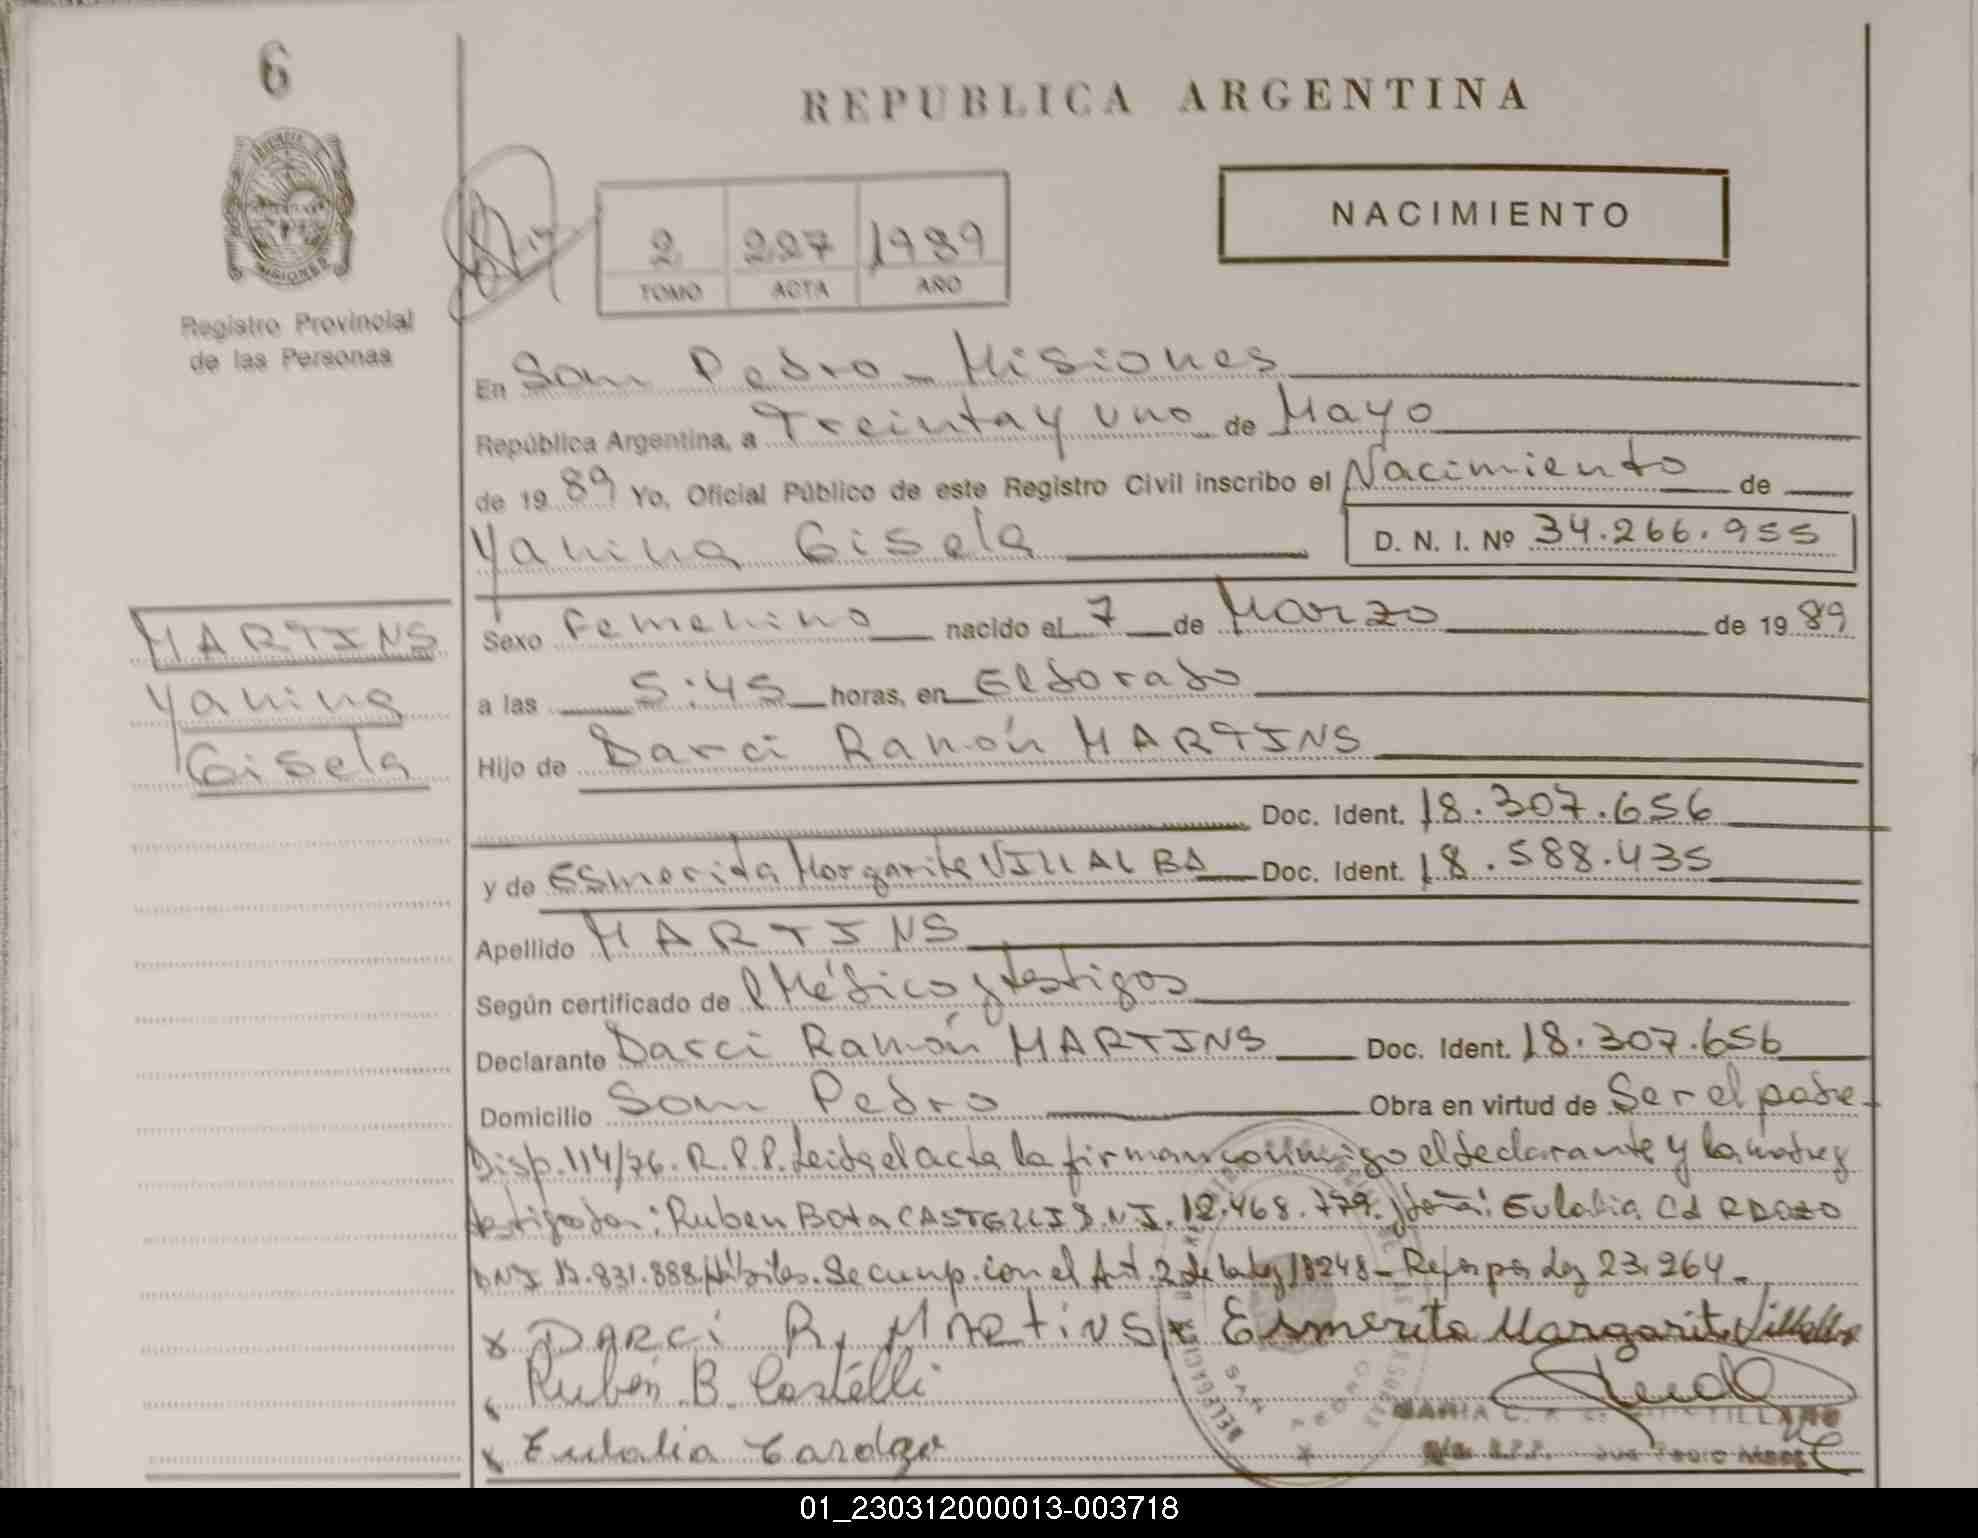 6
REPUBLICA ARGENTINA
NACIMIENTO
2 227 1989
TOMO ACTA AÑO
Registro Provincial
de las Personas
En San Pedro - Misiones
República Argentina, a Treinta y uno de Mayo
de 1989 Yo, Oficial Público de este Registro Civil inscribo el Nacimiento de
Yanina Gisela D. N. I. Nº 34.266.955
MARTINS
Yanina
Gisela
Sexo Femenino nacido el 7 de Marzo de 1989
a las 5:45 horas, en Eldorado
Hijo de Darci Ramón MARTINS
Doc. Ident. 18.307.656
y de Esmerida Margarita VILLALBA Doc. Ident. 18.588.435
Apellido MARTINS
Según certificado de Médico y testigos
Declarante Darci Ramón MARTINS Doc. Ident. 18.307.656
Domicilio San Pedro Obra en virtud de Ser el padre
Disp. 114/76. R.P.P. Leida el acta la firman conmigo el declarante y la madre y
testigos don: Ruben Bota CASTELLI D.N.I. 12.468.779. y doña: Eulalia CARDOZO
DNI 17.831.888 Hábiles. Se cump. con el Art. 2 de la ley 18248 - Ref. por Ley 23.264.-
x DARCI R. MARTINS x Esmerita Margarita Villalba
x Rubén B. Castelli
x Eulalia Cardozo
MARIA C.
SAN PEDRO
01_230312000013-003718